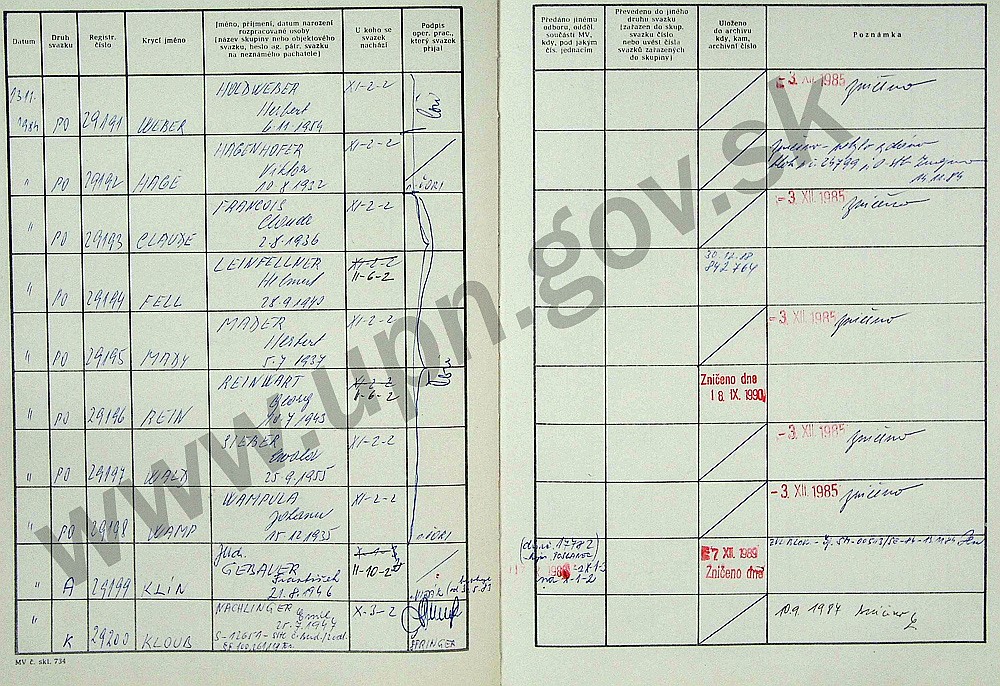 Datum
Druh svazku
Registr. číslo
Krycí jméno
Jméno, příjmení, datum narození
rozpracované osoby
(název skupiny nebo objektového
svazku, heslo ag. pátr. svazku
na neznámého pachatele)
U koho se
svazek
nachází
Podpis
oper. prac.,
který svazek
přijal
Předáno jinému
odboru, odděl.
součásti MV,
kdy, pod jakým
čís. jednacím
Převedeno do jiného
druhu svazku
(zařazen do skup.
svazku číslo
nebo uvést čísla
svazků zařazených
do skupiny)
Uloženo
do archivu
kdy, kam,
archivní číslo
Poznámka
13.11.
1984 PO 29191 WEBER
HOLDWEBER
Herbert
6.11.1954
XI-2-2
-3. XII. 1985 zničeno
" PO 29192 HAGE
HAGENHOFER
Viktor
10.8.1932
XI-2-2
" PO 29193 CLAUDE
FRANCOIS
Claude
2.8.1936
XI-2-2
-3. XII. 1985 zničeno
" PO 29194 FELL
LEINFELLNER
Helmut
28.9.1940
XI-2-2
II-6-2
30.12.18
842764
" PO 29195 MADY
MADER
Herbert
5.7.1937
XI-2-2
-3. XII. 1985 zničeno
" PO 29196 REIN
REINWART
Georg
10.7.1943
XI-2-2
II-6-2
Zničeno dne
18. IX. 1990
" PO 29197 WALD
SIEBER
Ewald
25.9.1955
XI-2-2
-3. XII. 1985 zničeno
" PO 29198 WAMP
WAMPULA
Johann
15.12.1935
XI-2-2
-3. XII. 1985 zničeno
" A 29199 KLÍN
JUdr.
GEBAUER
František
21.8.1946
II-10-2
na X-1-2
27 XII. 1989
Zničeno dne
" K 29200 KLOUB
NACHLINGER
Emil
25.7.1944
X-3-2
EFRINGER
10.9.1984 zničeno
MV č. skl. 734
www.upn.gov.sk